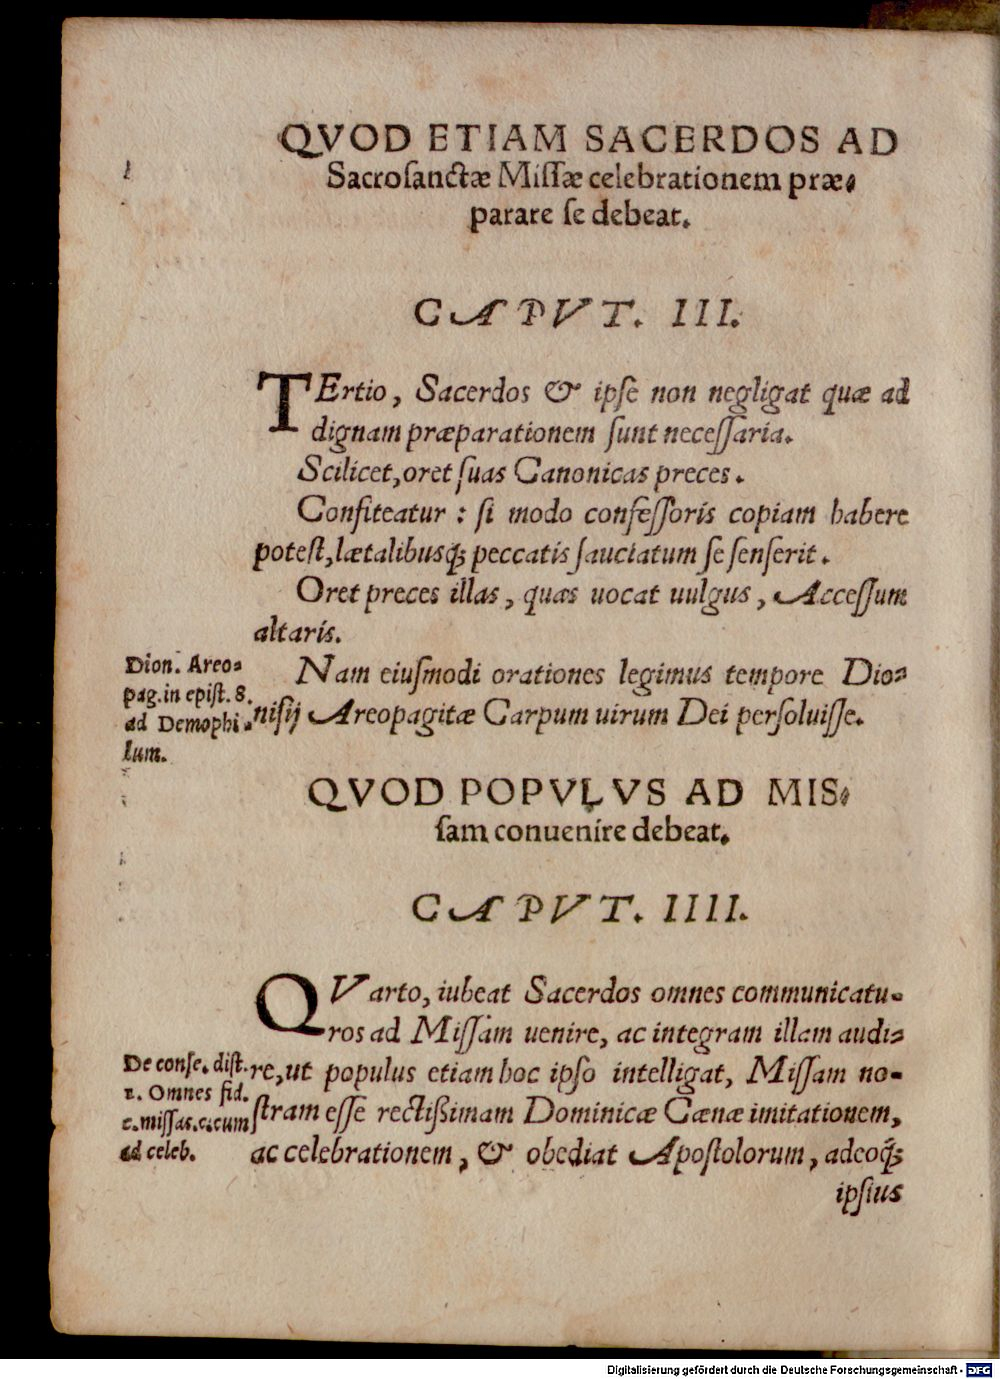 QVOD ETIAM SACERDOS AD
Sacrosanctæ Missæ celebrationem præ-
parare se debeat.
CAPVT. III.
TErtio, Sacerdos & ipse non negligat quæ ad
dignam præparationem sunt necessaria.
Scilicet, oret suas Canonicas preces.
Confiteatur : si modo confessoris copiam habere
potest, lætalibusq; peccatis sauciatum se senserit.
Oret preces illas, quas uocat uulgus, Accessum
altaris.
Nam eiusmodi orationes legimus tempore Dio-
nisij Areopagitæ Carpum uirum Dei persoluisse.
Dion. Areo-
pag. in epist. 8.
ad Demophi-
lum.
QVOD POPVLVS AD MIS-
sam conuenire debeat.
CAPVT. IIII.
QVarto, iubeat Sacerdos omnes communicatu-
ros ad Missam uenire, ac integram illam audi-
re, ut populus etiam hoc ipso intelligat, Missam no-
stram esse rectißimam Dominicæ Cænæ imitationem,
ac celebrationem, & obediat Apostolorum, adeoq;
De conse. dist.
1. Omnes fid.
c. missas. c. cum
ad celeb.
ipsius
Digitalisierung gefördert durch die Deutsche Forschungsgemeinschaft - DFG